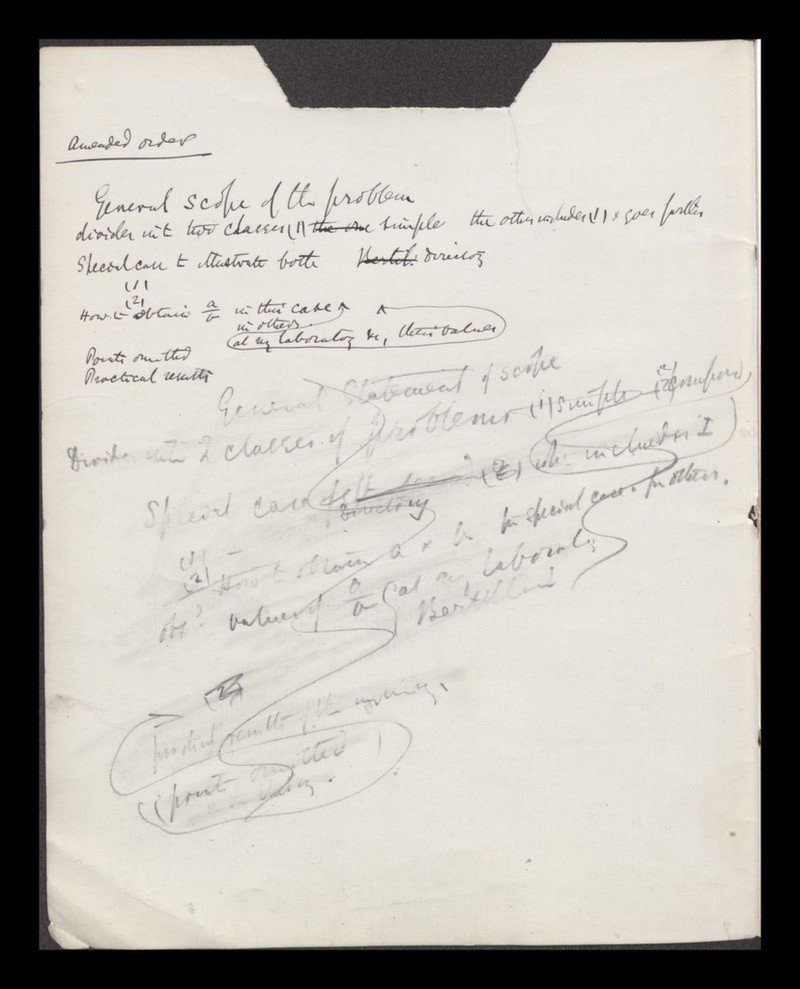 Amended order
General scope of the problem
divides into two classes (1) the one simple the other includes (1) & goes further
Special case to illustrate both Bertil: directory
(1)
(2)
How to obtain a/b in this case
in others
at my laboratory &c, their values
Points omitted
Practical results
General Statement of scope
Divides into 2 classes of problems (1) simple (2) compound
Special case (2) which includes I
directory
(1)
(2) How to obtain a & b for special case. for others.
obsd values of a/b (at my laboratory
Bertillon
(2)
practical results of the enquiry.
(points omitted